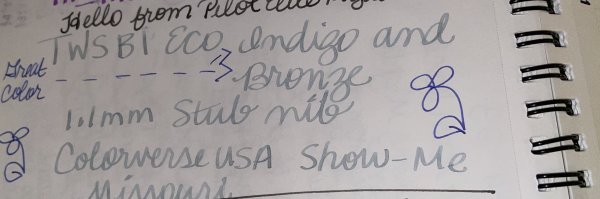 Hello from Pilot
TWSBI Eco Indigo and
Great
Color
Bronze
1.1mm Stub nib
Colorverse USA Show-Me
Missouri